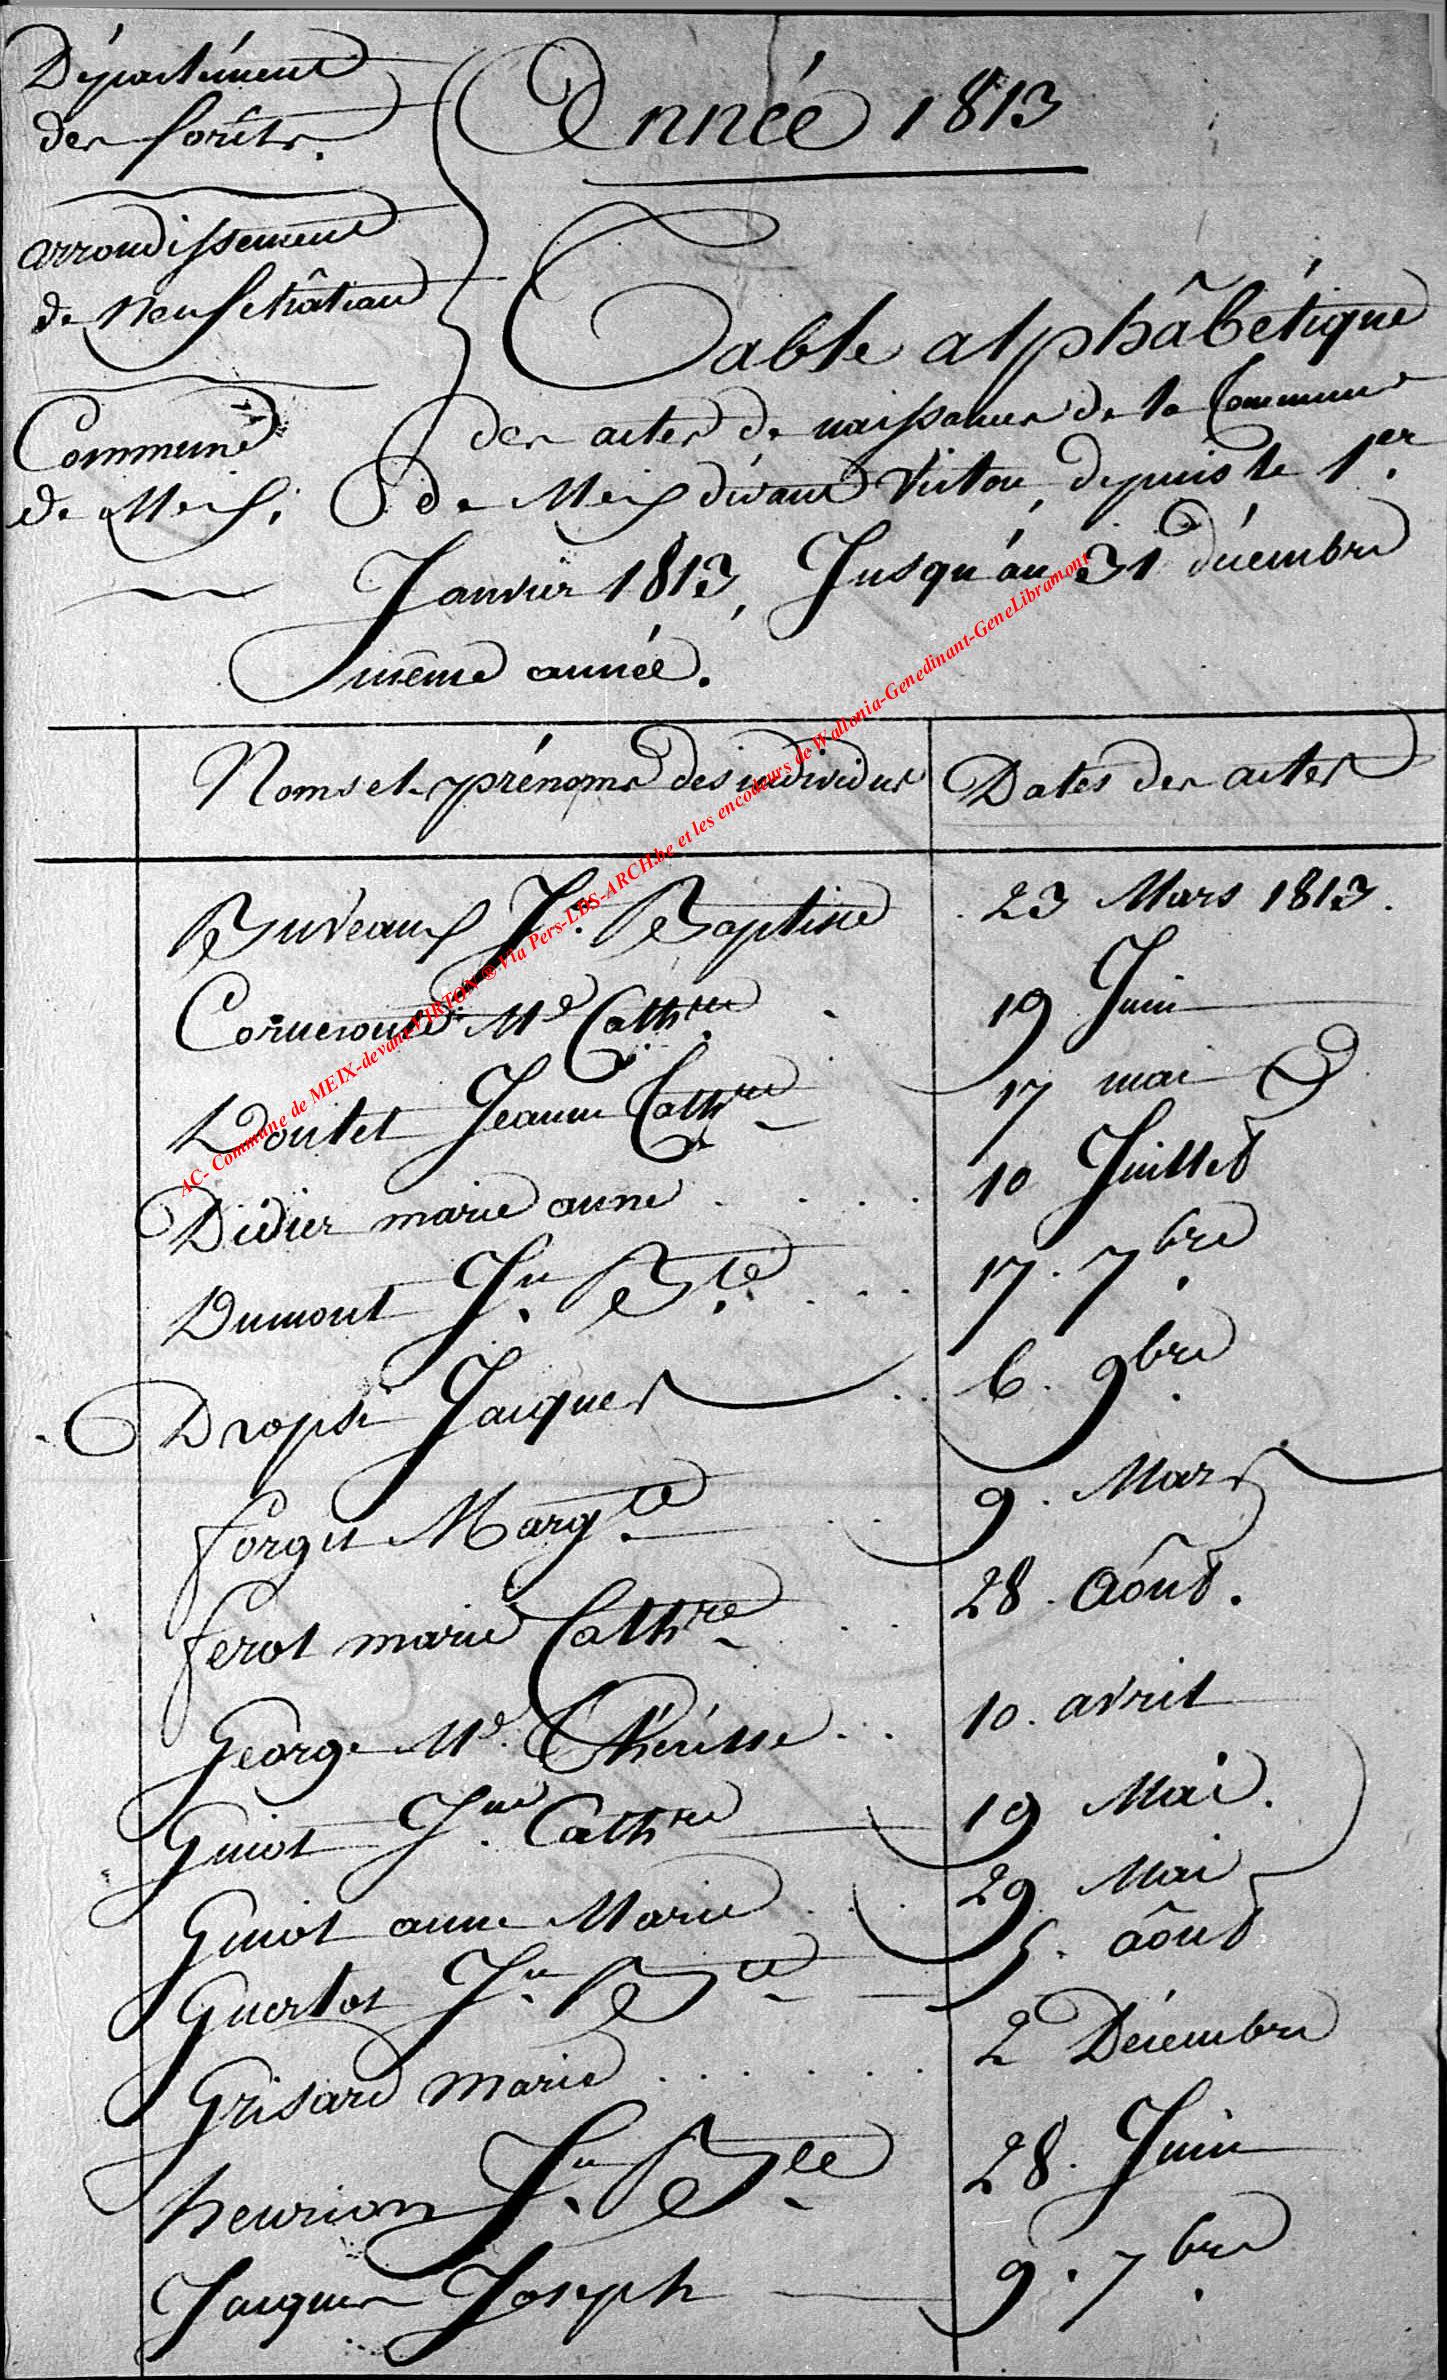 Département
des forêts.
arrondissement
de Neufchâteau
Commune
de Meix.
Année 1813
Table alphâbétique
des actes de naissances de la Commune
de Meix dévant Virton, depuis le 1.er
Janvier 1813, Jusqu'áu 31 décembre
même année.
Noms et prénoms des individus
Dates des actes
Buveaux J.n Baptiste 23 Mars 1813.
M.e Cath.re 19 Juin
Doutet Jeanne Cath.re 17 mai
Didier marie anne 10 Juillet
Dumont J.n B.te 17. 7.bre
Dropsi Jacques 6. 9.bre
forget Marg.te 9. Mars
ferot marie Cath.re 28. Aôut.
George M.e Thérèsse 10. avril
Guiot J.ne Cath.re 19 Mai.
Guiot anne Marie 29 Mai
Guertot J.n B.te 5. aôut
Grisard marie 2 Décembre
henrion J.n B.te 28. Juin
Jacques Joseph 9. 7.bre
AC- Commune de MEIX-devant-VIRTON ® Via Pers-LDS-ARCH.be et les encodeurs de Wallonia-Genedinant-GeneLibramont